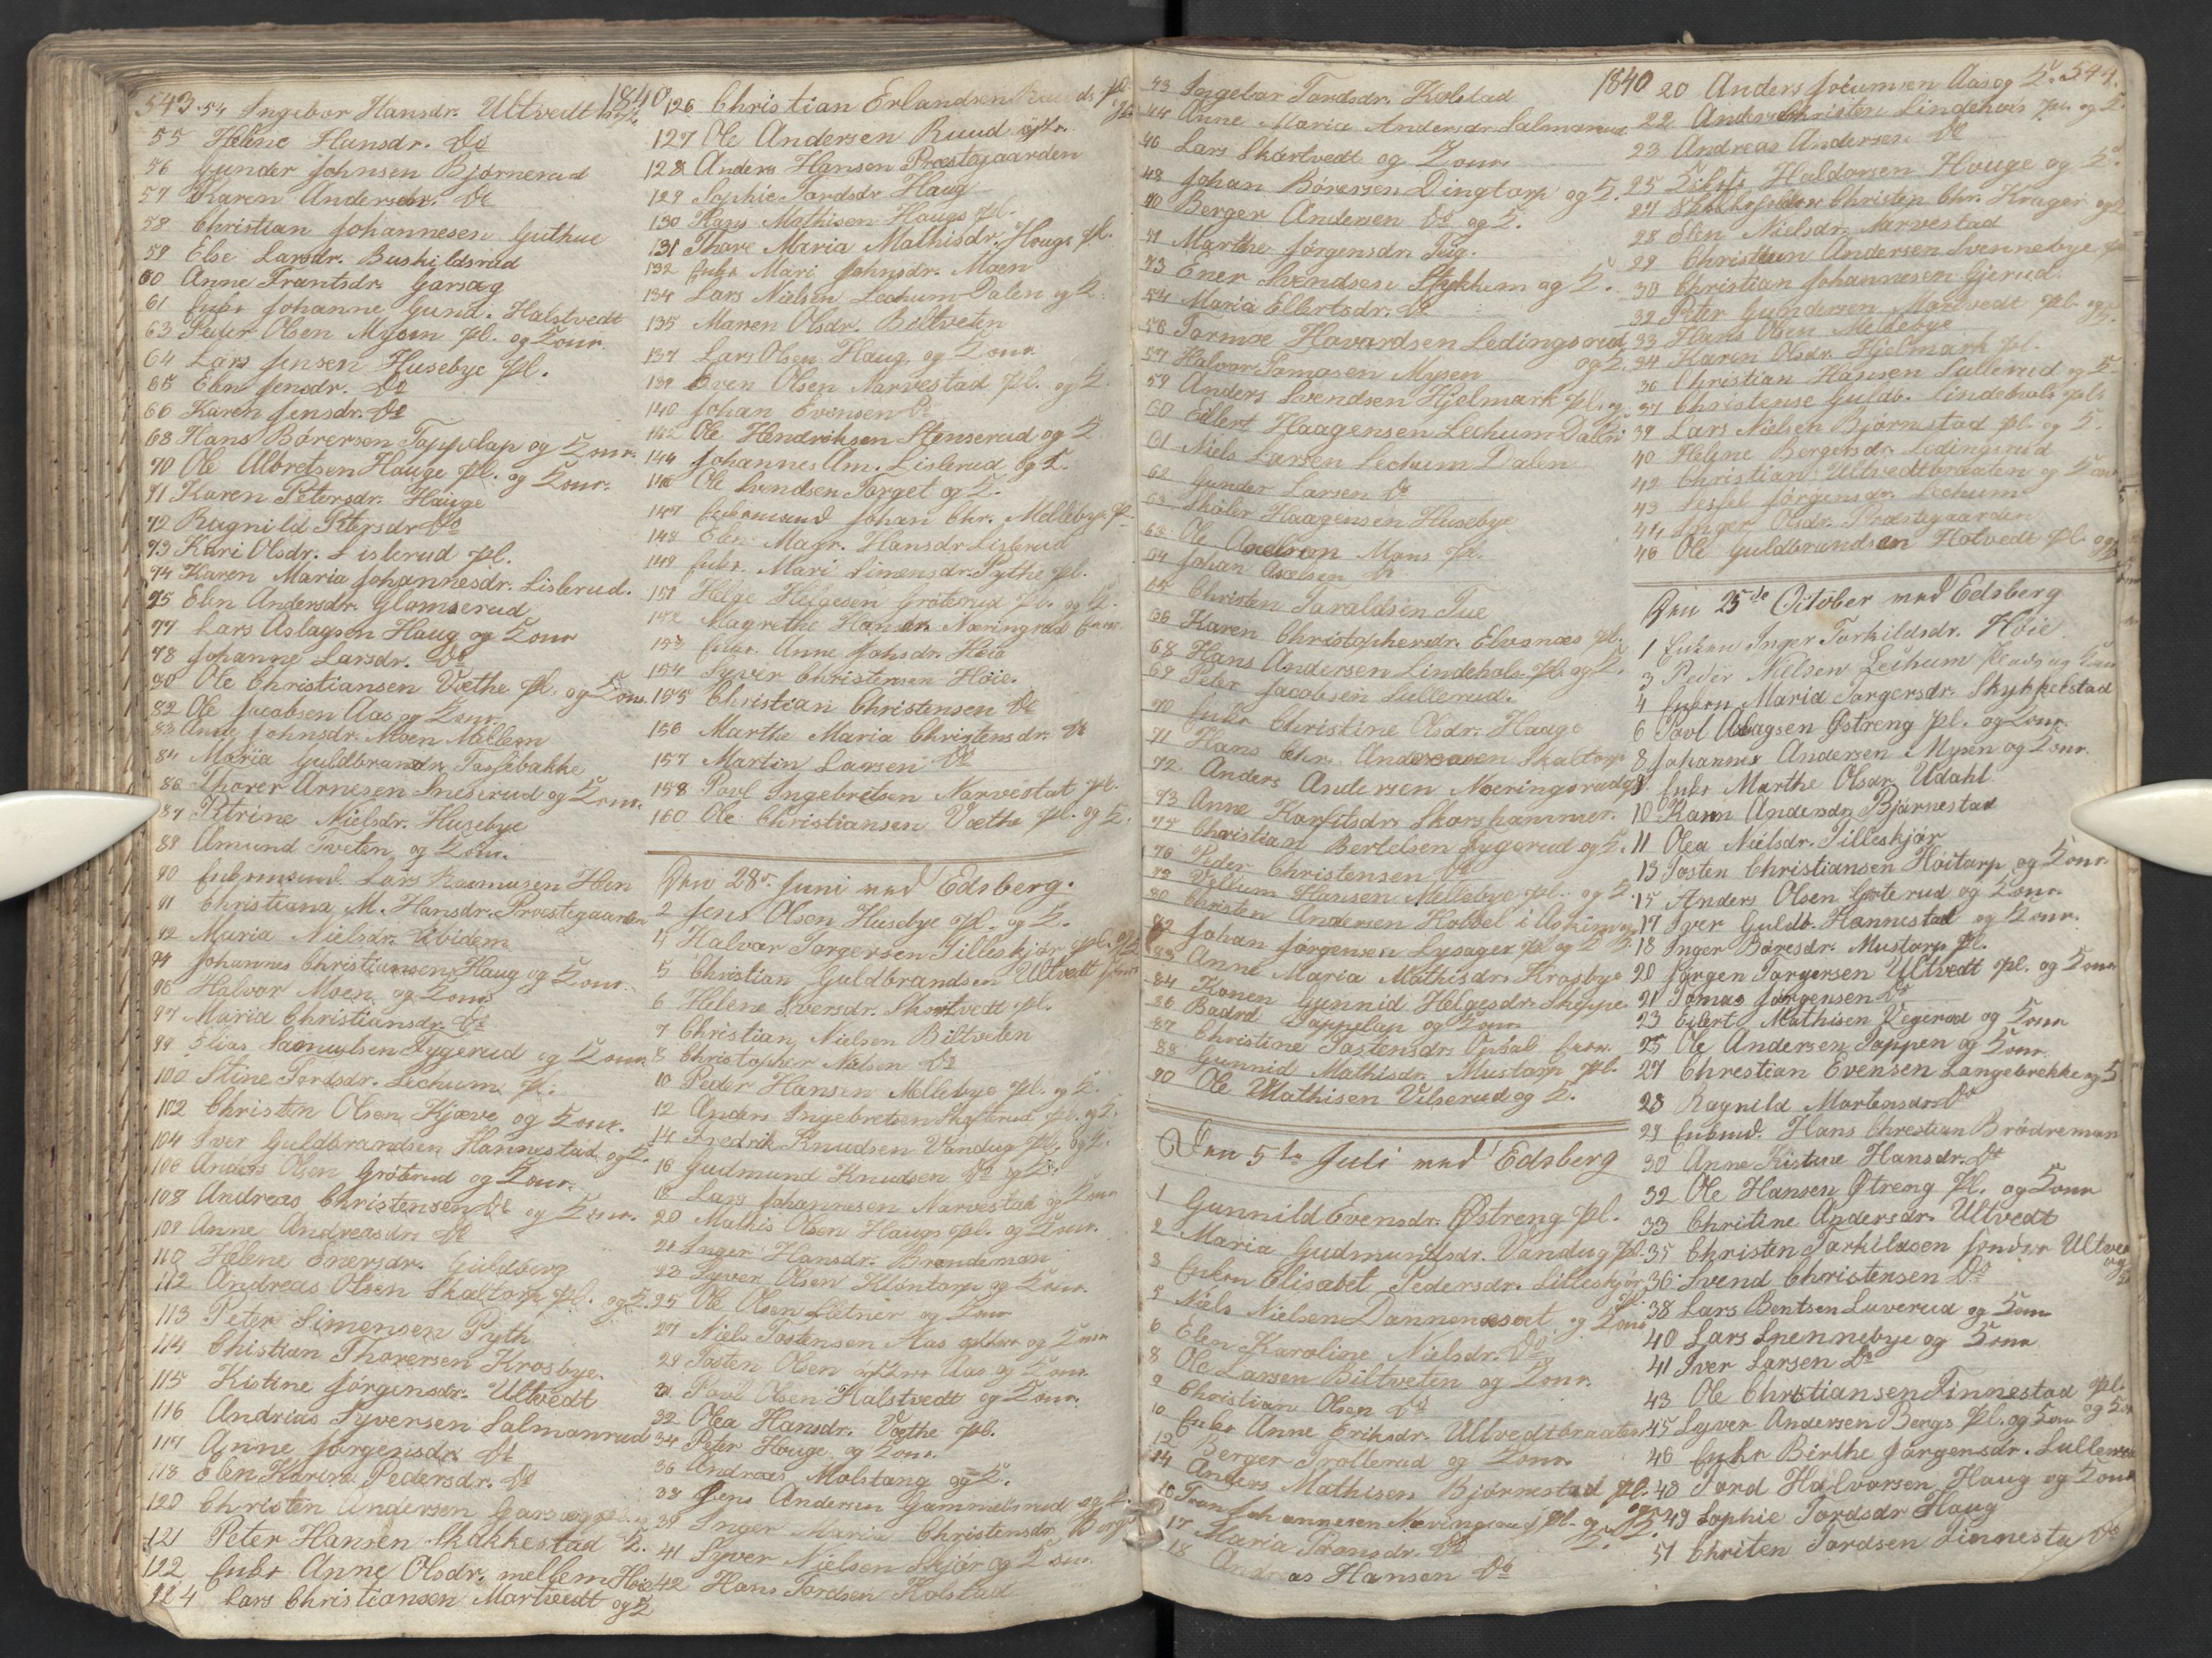 543.
1840
54 Ingebor Hansdr. Ultvedt
55 Helene Hansdr. Do
56 Gunder Johnsen Bjørnerud
57 Karen Andersdr. Do
58 Christian Johannesen Guthue
59 Else Larsdr. Buskildsrud
60 Anne Frantsdr. Garseg
61 Enke Johanne Gund. Halstvedt
63 Peder Olsen Mysen pl. og Konr.
64 Lars Jensen Husebye pl.
65 Elen Jensdr. Do
66 Karen Jensdr. Do
68 Hans Børersen Tappelap og Konr.
70 Ole Albretsen Hauge pl. og Konr.
71 Karen Petersdr. Hauge
72 Ragnild Petersdr Do
73 Kari Olsdr. Lislerud pl.
74 Karen Maria Johannesdr. Lislerud.
75 Elen Andersdr. Glomserud
77 Lars Aslagsen Haug og Konr
78 Johanne Larsdr. Do
80 Ole Christiansen Væthe pl. og Konr.
82 Ole Jacobsen Aas og Konr.
83 Johnsdr. Moen Mellem
84 Maria Guldbrandr. Tassebakke
86 Thorer Arnesen Sneserud og Konr.
87 Petrine Nielsdr. Husebye
89 Amund Tveten og Konr.
90 Enkemand Lars Rasmusen Hen
91 Christiana M. Hansdr. Præstegaarden
92 Maria Nielsdr. ibidem
94 Johannes Christiansen Haug og Konr.
96 Halvor Moen og Konr
97 Maria Christiansdr. Do
99 Elias Samuelsen Tygerud og Konr
100 Stine Tordsdr. Lechum pl.
102 Christen Olsen Kjæve og Konr.
104 Iver Guldbrandsen Hannestad og K.
106 Anders Olsen Grøterud og Konr.
108 Andreas Christensen Do og Konr.
109 Anne Andreasdr. Do
110 Helene Enersdr. Guldberg
112 Andreas Olsen Skaltorp pl. og K.
113 Peter Simensen Pyth
114 Chistian Thorersen Krosbye.
115 Kistine Jørgensdr. Ultvedt
116 Andrias Syversen Salmonrud
117 Anne Jørgensdr. Do
118 Elen Karine Pedersdr. Do
120 Christen Andersen
121 Peter Hansen Skakkestad K.
122 Enke Anne Olsdr. mellem Høie
124 Lars Christiansen Martvedt og K
126 Christian Erlandsen
127 Ole Andersen Ruud
128 Anders Hansen Præstegaarden
129 Sophie Tordsdr Haug
130 Hans Mathisen Haugs pl.
131 Thore Maria Mathisdr. Hougs pl.
132 Enke Mari Johnsdr. Moen
134 Lars Nielsen Lechum Dalen og K.
135 Maren Olsdr. Biltveten
137 Lars Olsen Haug og Konr.
139 Even Olsen Narvestad pl. og K.
140 Johan Evensen Do
142 Ole Hendriksen Stenserud og K
144 Johannes Am. Lislerud og K.
146 Ole Svendsen Torget og K.
147 Enkemand Johan Chr. Mellebye pl
148 Elen Magr. Hansdr Lislerud
149 Enke Mari Simensdr. Pythe pl.
151 Helge Helgesen Grøterud pl. og K.
152 Magrethe Hansdr. Næringrud
153 Enke Anne Johsdr. Høie
154 Syver Christensen Høie.
155 Christian Christensen Do
156 Marthe Maria Christensdr. Do
157 Martin Larsen Do
158 Povl Ingebretsen Narvestat pl.
160 Ole Christiansen Væthe pl. og K.
Den 28de Juni ved Edsberg.
2 Jens Olsen Husebye pl. og K.
4 Halvor Torgersen Tilleskjør pl. og K
5 Christian Guldbrandsen Ultvedt
6 Helene Iversdr. Skortvedt pl.
7 Christian Nielsen Biltveten
8 Christopher Nielsen Do
10 Peder Hansen Mellebye pl. og K.
12 Anders Ingebretsen Skofterud pl. og K.
14 Fredrik Knudsen Vandug pl. og K.
16 Gudmund Knudsen Do og K.
18 Lars Johannesen Narvestad og Konr
20 Mathis Olsen Haugs pl. og Konr.
21 Inger Hansdr. Brendemoen
23 Syver Olsen Kløntorp og Konr.
25 Ole Olsen Letner og Konr
27 Niels Tostensen Aas og Konr
29 Tosten Olsen Aas og Konr.
31 Povl Olsen Halstvedt og Konr.
32 Olea Hansdr. Væthe pl.
34 Peter Houge og Konr.
36 Andreas Molstang og K.
38 Jens Andersen Gammelsrud og K.
39 Inger Maria Christensdr. Berg
41 Syver Nielsen Skjør og Konr.
42 Hans Tordsen Kolstad
1840
544.
43 Ingebor Tordsdr. Kolstad
44 Anne Maria Andersdr. Salmonrud
46 Lars Skørtvedt og Konr
48 Johan Børersen Dingtorp og K.
50 Berger Andersen Do og K.
51 Marthe Jørgensdr. Tug.
53 Ener Svendsen Slykhum og K.
54 Maria Ellertsdr. Do
56 Tormoe Havardsen Ledingsrud og K.
57 Halvor Tomasen Mysen
59 Anders Svendsen Hjelmark pl. og
60 Edlert Haagensen Lechum Dalen
61 Niels Larsen Lechum Dalen
62 Gunder Larsen Do
63 Skøler Haagensen Husebye
Ole Axelsen Mons pl.
64 Johan Axelsen Do
65 Christen Taraldsen Tue
66 Karen Christophersdr. Elvsnæs pl.
68 Hans Andersen Lindehols pl. og K.
69 Peter Jacobsen Sullerud.
70 Enke Christine Olsdr. Hauge
71 Hans Chr. Andersen Skaltorp
72 Anders Andersen Næringsrud
73 Anne Karfitsdr. Skorshammer.
75 Christian Bertelsen Tygerud og K.
76 Peder Christensen Do
78 Villum Hansen Mellebye pl. og K.
80 Christen Andersen Hobbel i Askim og
82 Johan Jørgensen Lysager pl og K
83 Anne Maria Mathisdr. Krosbye
84 Konen Gunnid Helgesdr. Skippe
86 Baard Tappelap og Konr.
87 Christine Tostensdr. Opsal
88 Gunnid Mathisdr. Mustorp pl.
90 Ole Mathisen Vilserud og K.
Den 5te Juli ved Edsberg
1 Gunnild Evensdr. Østreng pl.
2 Maria Gudmundsdr. Vandug pl.
3 Enken Elisabet Pedersdr. Lilleskjør pl.
5 Niels Nielsen Dannevesvat og Konr
6 Elen Karoline Nielsdr. Do
8 Ole Larsen Biltveten og Konr.
9 Christian Olsen Do
10 Enke Anne Eriksdr. Ultvedtbraaten
12 Berger Trollerud og Konr.
14 Anders Mathisen Bjørnestad pl. og K.
16 Tran Johannesen Næringsrud pl. og K.
17 Maria Transdr. Do
18 Andreas Hansen Do
20 Anders Joeumsen Aas og K.
22 Anders Christen Lindehols pl. og K.
23 Andreas Andersen Do
25 Haldorsen Houge og K.
27 Skoleholder Christen Chr. Krager og K
28 Elen Nielsdr. Narvestad
29 Christian Andersen Svennebye pl
30 Christian Johannesen Gjerud.
32 Peter Gundersen Martvedt pl. og K.
33 Hans Olsen Mellebye
34 Karen Olsdr. Hjelmark pl.
36 Christian Hansen Sullerud og K.
37 Christense Guldb. Lindehols pl.
39 Lars Nielsen Bjørnstad pl. og K.
40 Helene Bergersdr. Ledingsrud
42 Christian Ultvedtbraaten og Konr
43 Sessel Jørgensdr. Lechum
44 Inger Olsdr. Præstegaarden
46 Ole Guldbrandsen Hotvedt pl. og K
Den 25de October ved Edsberg
1 Enken Inger Torkildsdr. Høie
3 Peder Nielsen Lechum og Konr
4 Enken Maria Torgersdr. Skykkelstad
6 Povl Aslagsen Østreng pl. og Konr.
8 Johannes Andersen Mysen og Konr.
9 Enke Marthe Olsdr. Udahl
10 Karen Andersdr. Bjørnestad
11 Olea Nielsdr. Tilleskjør
13 Tosten Christiansen Høitorp og Konr.
15 Anders Olsen Grøterud og Konr.
17 Iver Guldb. Hannestad og Konr.
18 Inger Børesdr. Mustorp pl.
20 Jørgen Torgersen Ultvedt pl. og Konr
21 Tomas Jørgensen Do
23 Eilert Mathisen Vegerud og Konr
25 Ole Andersen Tappen og Konr
27 Chrestian Evensen Langebrekke og K
28 Ragnild Mortensdr. Do
29 Enkmd. Hans Chrestian Brødremoen
30 Anne Kistine Hansdr. Do
32 Ole Hansen Østreng pl. og Konr
33 Chritine Andersdr. Ultvedt
35 Christen Torkildsen søndre Ultvedt og K
36 Svend Christensen Do
38 Lars Bentsen Luverud og Konr
40 Lars Snennebye og Konr
41 Iver Larsen Do
43 Ole Christiansen Finnestad pl. og Konr
45 Syver Andersen Bergs pl. og Konr
46 Enke Birthe Jørgensdr. Sullerud
48 Tord Halvorsen Haug og Konr
49 Sophie Tordsdr Haug
51 Chriten Tordsen Linnesta Do